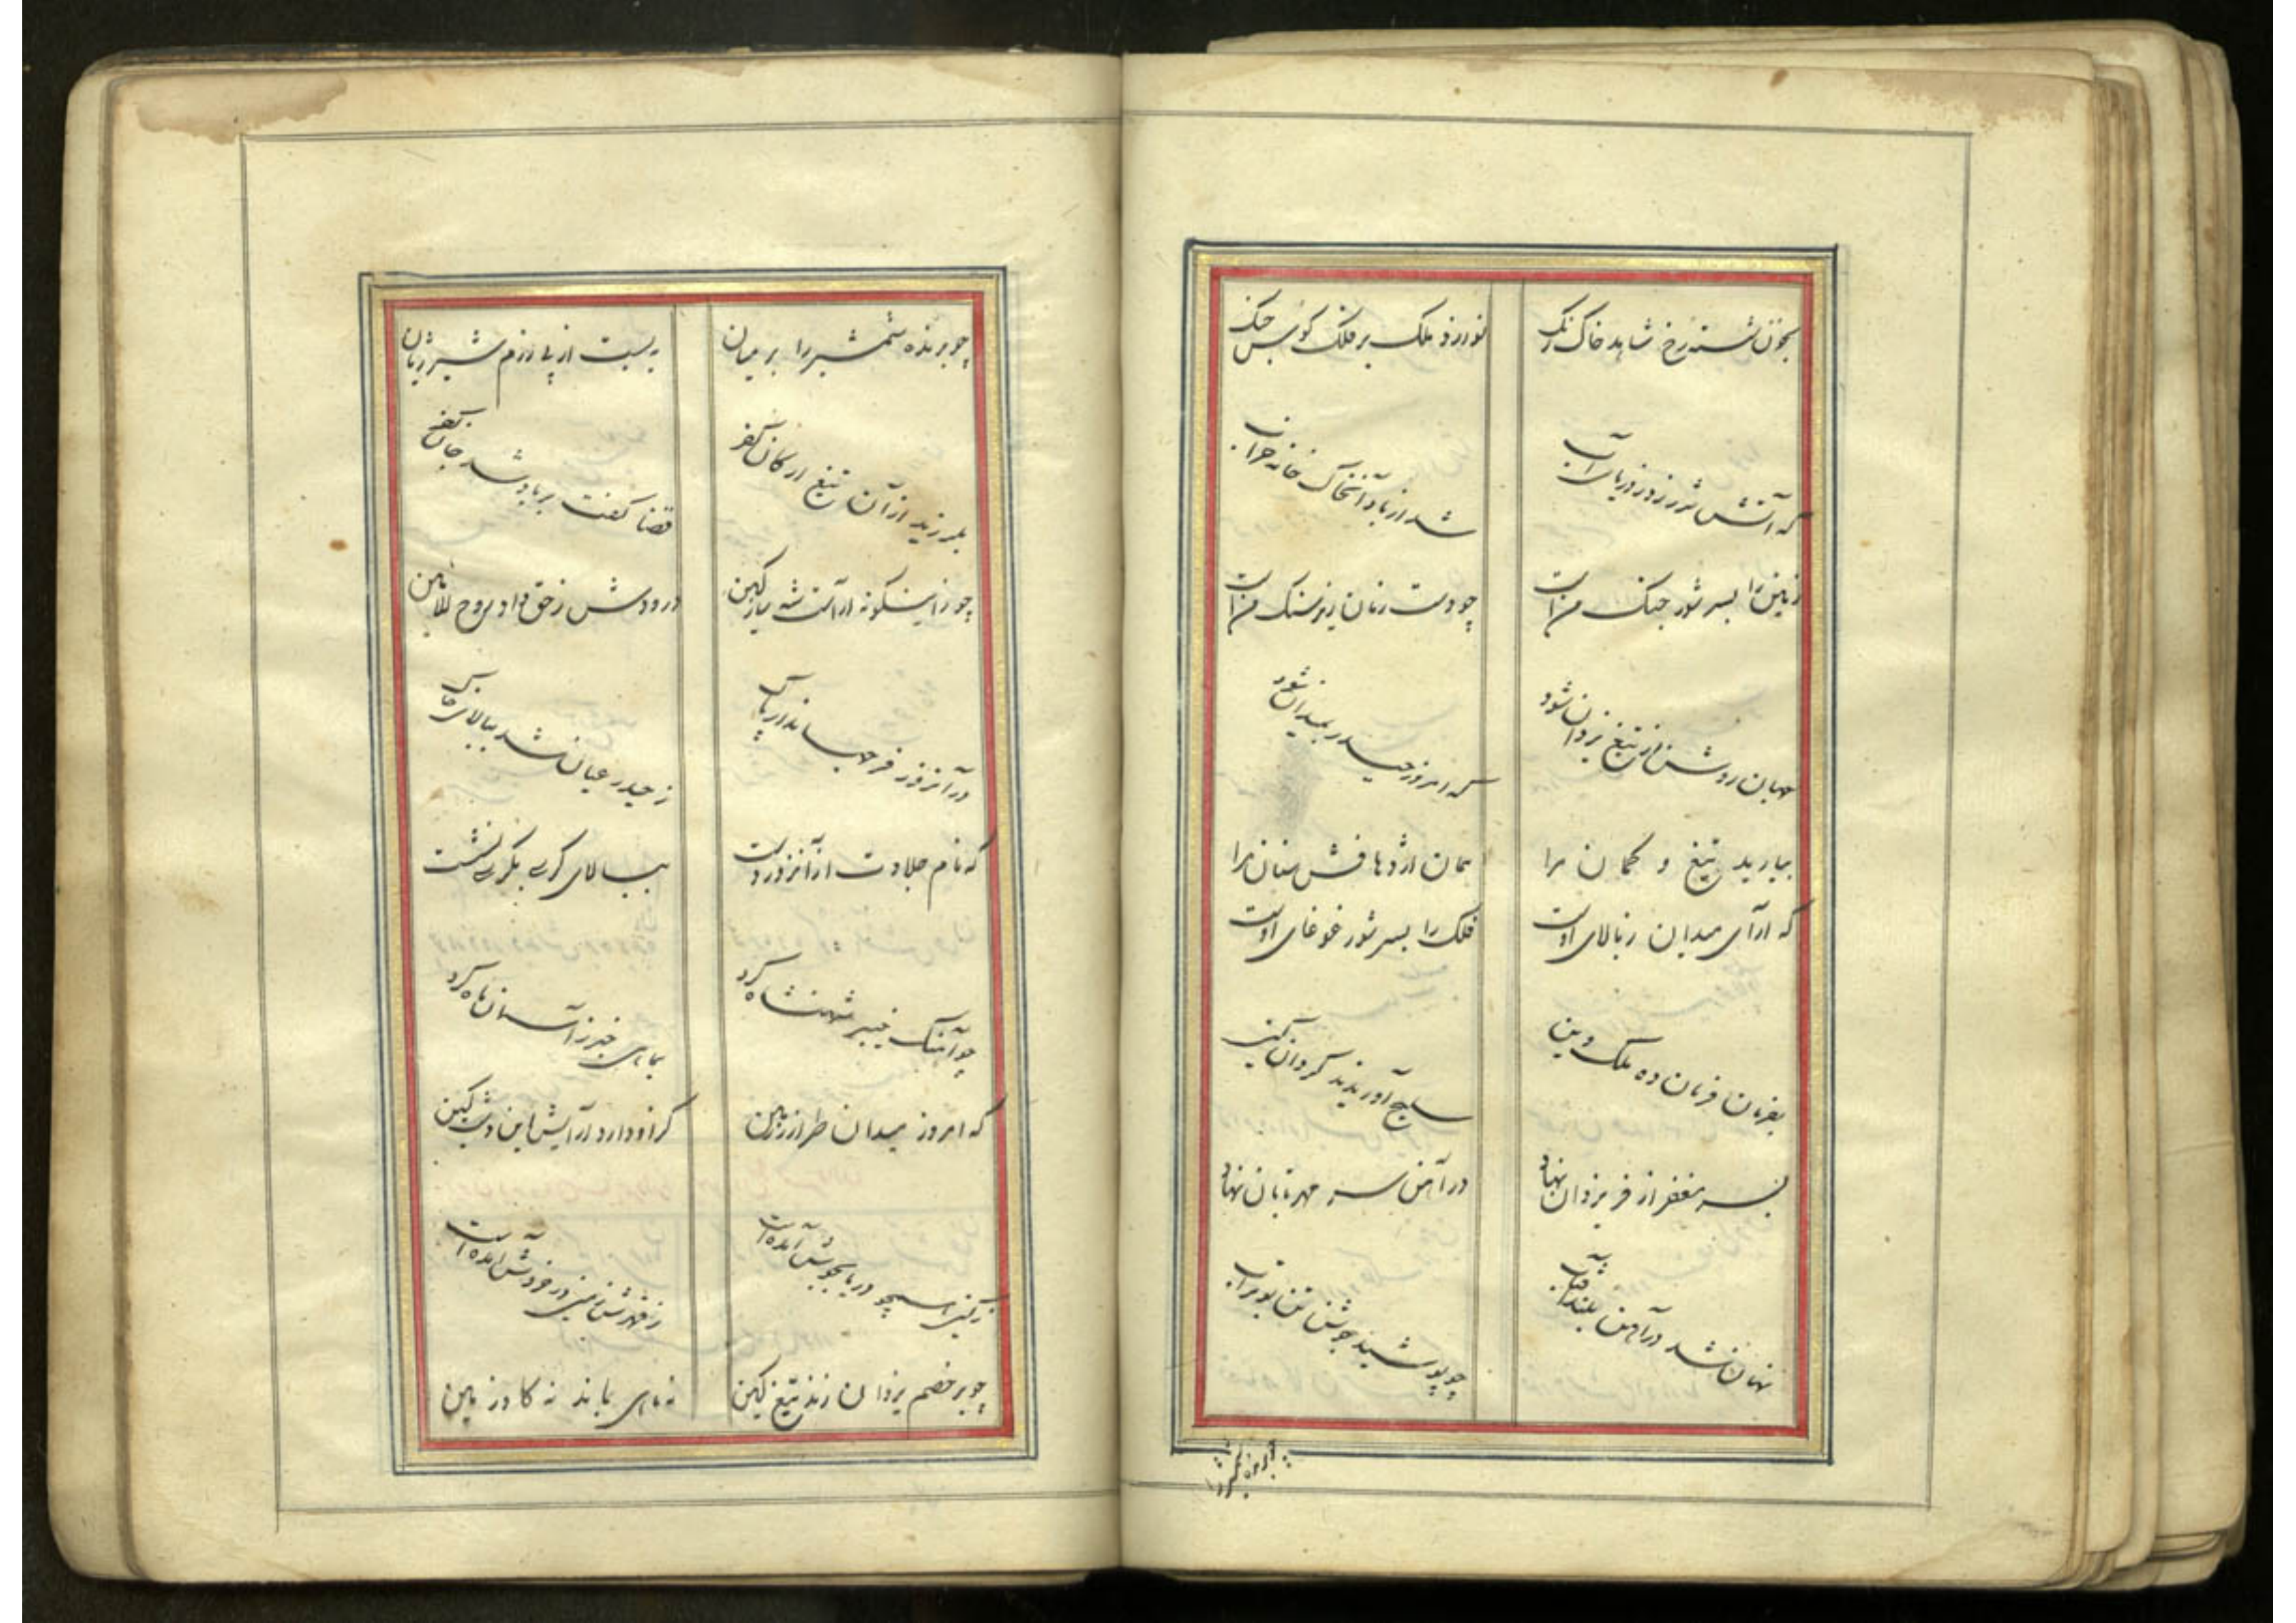 بخون شسته رخ شاهد خاک رنگ
نوازد ملک بر فلک کوس جنگ
که آتش شرر زد ز دریای آب
شد از باد آتش خاک خانه خراب
زمین را بسر شور جنگ من است
چو دست زمان زیر سنگ من است
جهان روشن از تیغ یزدان شود
که امروز حیدر بمیدان شود
بیارید تیغ و کمان مرا
همان اژدها فش سنان مرا
که آرای میدان ز بالای اوست
فلک را بسر شور غوغای اوست
بفرمان فرمان ده ملک و دین
سلیح آوریدند گردان کین
بسر مغفر از فر یزدان نهاد
در آهن سر مهر تابان نهاد
نهان شد در آهن بلند آفتاب
چو پوشید جوشن تن بوتراب
چو برنده شمشیر را
چو برنده شمشیر را بر میان
ببست از پی رزم شیر ژیان
بلرزید از آن تیغ ارکان کفر
قضا گفت بر باد شد جان کفر
چو زاینگونه آراست شه ساز کین
درودش ز حق داد روح الامین
در آنروز فر جهاندار پاک
ز حیدر عیان شد ببالای خاک
که نام جلادت از آنروز
ببالای کرسی بکرسی نشست
چو آهنگ خیبر شهنشاه کرد
بماهی خبر ز آسمان ماه کرد
که امروز میدان طراز زمین
کز او دارد آرایش این دشت کین
ز کین همچو دریا بجوش آمده است
ز قهرش زمین در خروش آمده است
چو بر خصم یزدان زند تیغ کین
نه ماهی بماند نه کاو زمین